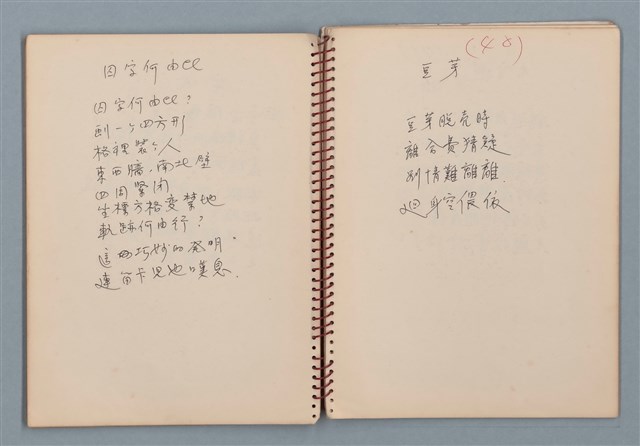 囚字何由ㄹㄹ
囚字何由ㄹㄹ?
劃一个四方形
格裡裝个人
東西牆,南北壁
四周緊閉
生樣方格變禁地
軌跡何由行?
這巧妙的發明
連笛卡兒也嘆息.
(40)
豆芽
豆芽脫壳時
離合費猜疑
別情難離離
迴身空偎依